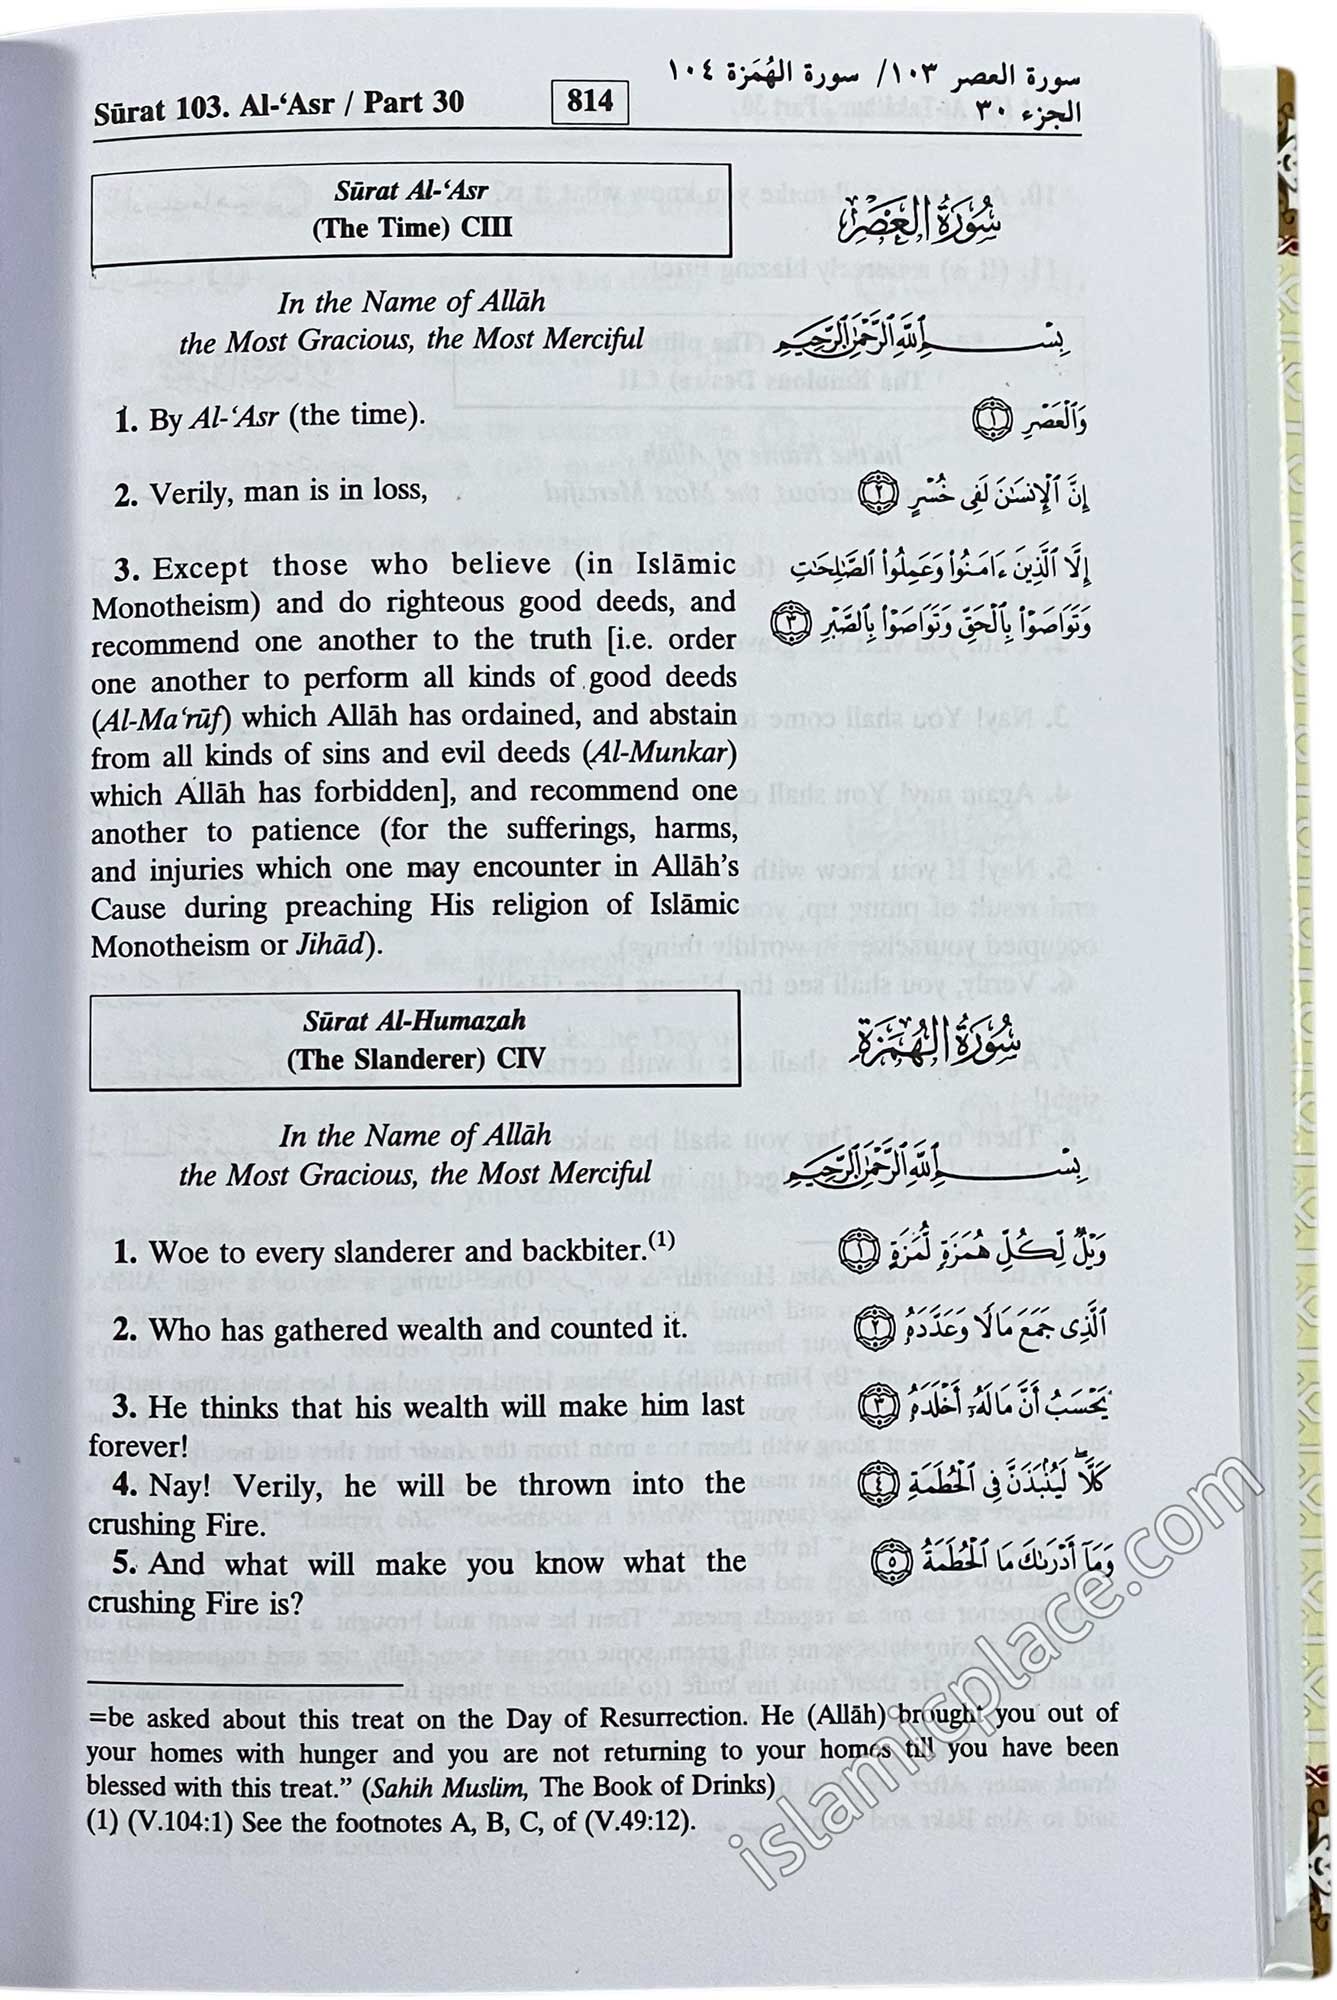 Sūrat 103. Al-‘Asr / Part 30
814
سورة العصر ١٠٣/ سورة الهُمَزة ١٠٤
الجزء ٣٠
Sūrat Al-‘Asr
(The Time) CIII
سُورَةُ العَصْرِ
In the Name of Allāh
the Most Gracious, the Most Merciful
بِسْمِ اللَّهِ الرَّحْمَٰنِ الرَّحِيمِ
1. By Al-‘Asr (the time).
وَٱلْعَصْرِ ١
2. Verily, man is in loss,
إِنَّ ٱلْإِنسَٰنَ لَفِى خُسْرٍ ٢
3. Except those who believe (in Islāmic
Monotheism) and do righteous good deeds, and
recommend one another to the truth [i.e. order
one another to perform all kinds of good deeds
(Al-Ma‘rūf) which Allāh has ordained, and abstain
from all kinds of sins and evil deeds (Al-Munkar)
which Allāh has forbidden], and recommend one
another to patience (for the sufferings, harms,
and injuries which one may encounter in Allāh’s
Cause during preaching His religion of Islāmic
Monotheism or Jihād).
إِلَّا ٱلَّذِينَ ءَامَنُوا۟ وَعَمِلُوا۟ ٱلصَّٰلِحَٰتِ
وَتَوَاصَوْا۟ بِٱلْحَقِّ وَتَوَاصَوْا۟ بِٱلصَّبْرِ ٣
Sūrat Al-Humazah
(The Slanderer) CIV
سُورَةُ الهُمَزَةِ
In the Name of Allāh
the Most Gracious, the Most Merciful
بِسْمِ اللَّهِ الرَّحْمَٰنِ الرَّحِيمِ
1. Woe to every slanderer and backbiter.(1)
وَيْلٌ لِّكُلِّ هُمَزَةٍ لُّمَزَةٍ ١
2. Who has gathered wealth and counted it.
ٱلَّذِى جَمَعَ مَالًا وَعَدَّدَهُۥ ٢
3. He thinks that his wealth will make him last
forever!
يَحْسَبُ أَنَّ مَالَهُۥٓ أَخْلَدَهُۥ ٣
4. Nay! Verily, he will be thrown into the
crushing Fire.
كَلَّا ۖ لَيُنۢبَذَنَّ فِى ٱلْحُطَمَةِ ٤
5. And what will make you know what the
crushing Fire is?
وَمَآ أَدْرَىٰكَ مَا ٱلْحُطَمَةُ ٥
=be asked about this treat on the Day of Resurrection. He (Allāh) brought you out of
your homes with hunger and you are not returning to your homes till you have been
blessed with this treat.” (Sahih Muslim, The Book of Drinks)
(1) (V.104:1) See the footnotes A, B, C, of (V.49:12).
islamicplace.com